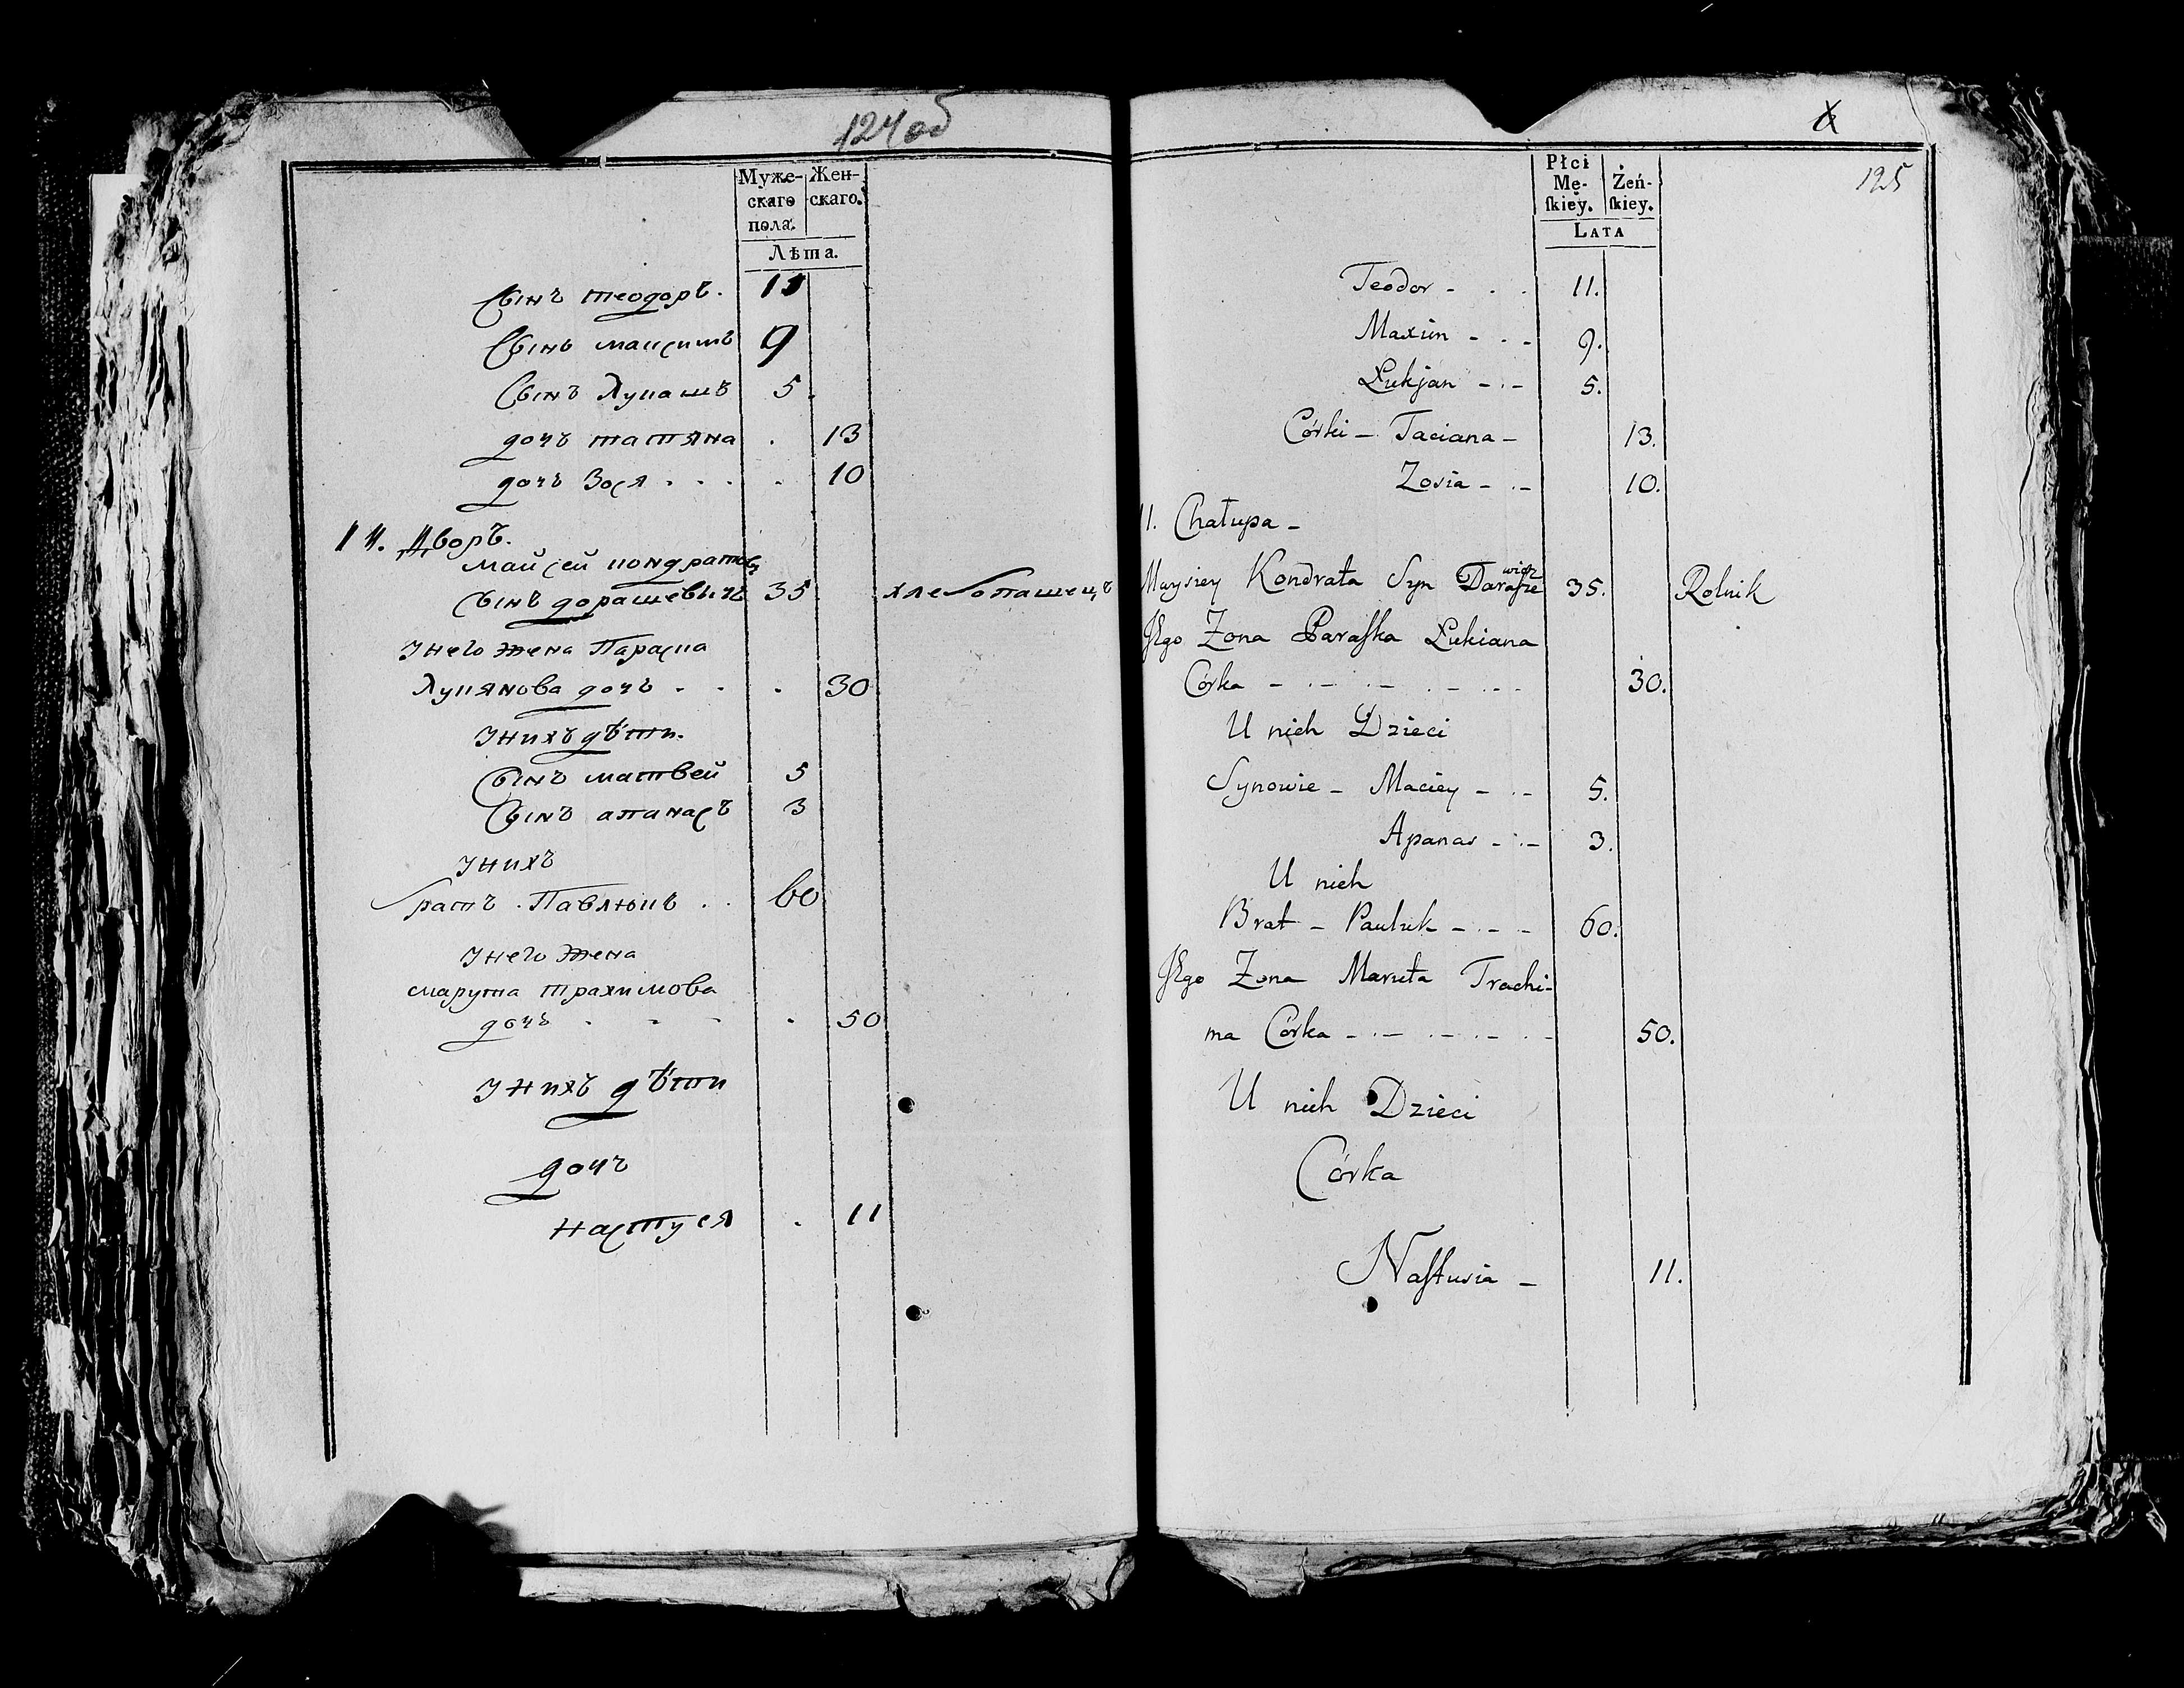 124об
Муже- Жен-
скаго скаго.
пола.
Лѣта.
Сынъ теодоръ. 11
Сынъ максимъ 9
Сынъ Лукашъ 5
дочъ татяна . 13
дочъ Зося . . . . 10
11. Дворъ.
Майсей кондратовъ
сынъ дорашевичъ 35 хлебопашецъ
Унего жена Параска
Лукянова дочъ . . . 30
Унихъ дѣти.
Сынъ матвей 5
Сынъ апанасъ 3
Унихъ
братъ . Павлюкъ . . 60
Унего жена
марута трахимова
дочъ . . . . 50
Унихъ дѣти
дочъ
настуся . 11
125
Płci
Mę- Żeń-
ſkiey. ſkiey.
LATA
Teodor - . . 11.
Maxim - . - 9.
Łukjan - . - 5.
Córki - Taciana - 13.
Zosia - . - 10.
11. Chałupa -
Maysiey Kondrata Syn Daraſzewicz 35. Rolnik
Jego Zona Paraſka Łukiana
Córka - . - . - . - . . . 30.
U nich Dzieci
Synowie - Maciey - . - 5.
Apanas - . - 3.
U nich
Brat - Pauluk - . - . - 60.
Jego Zona Maruta Trachi-
ma Córka - . - . - . - . - 50.
U nich Dzieci
Córka
Naſtusia - 11.